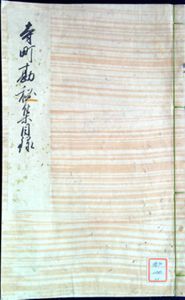 寺町勘秘集目録